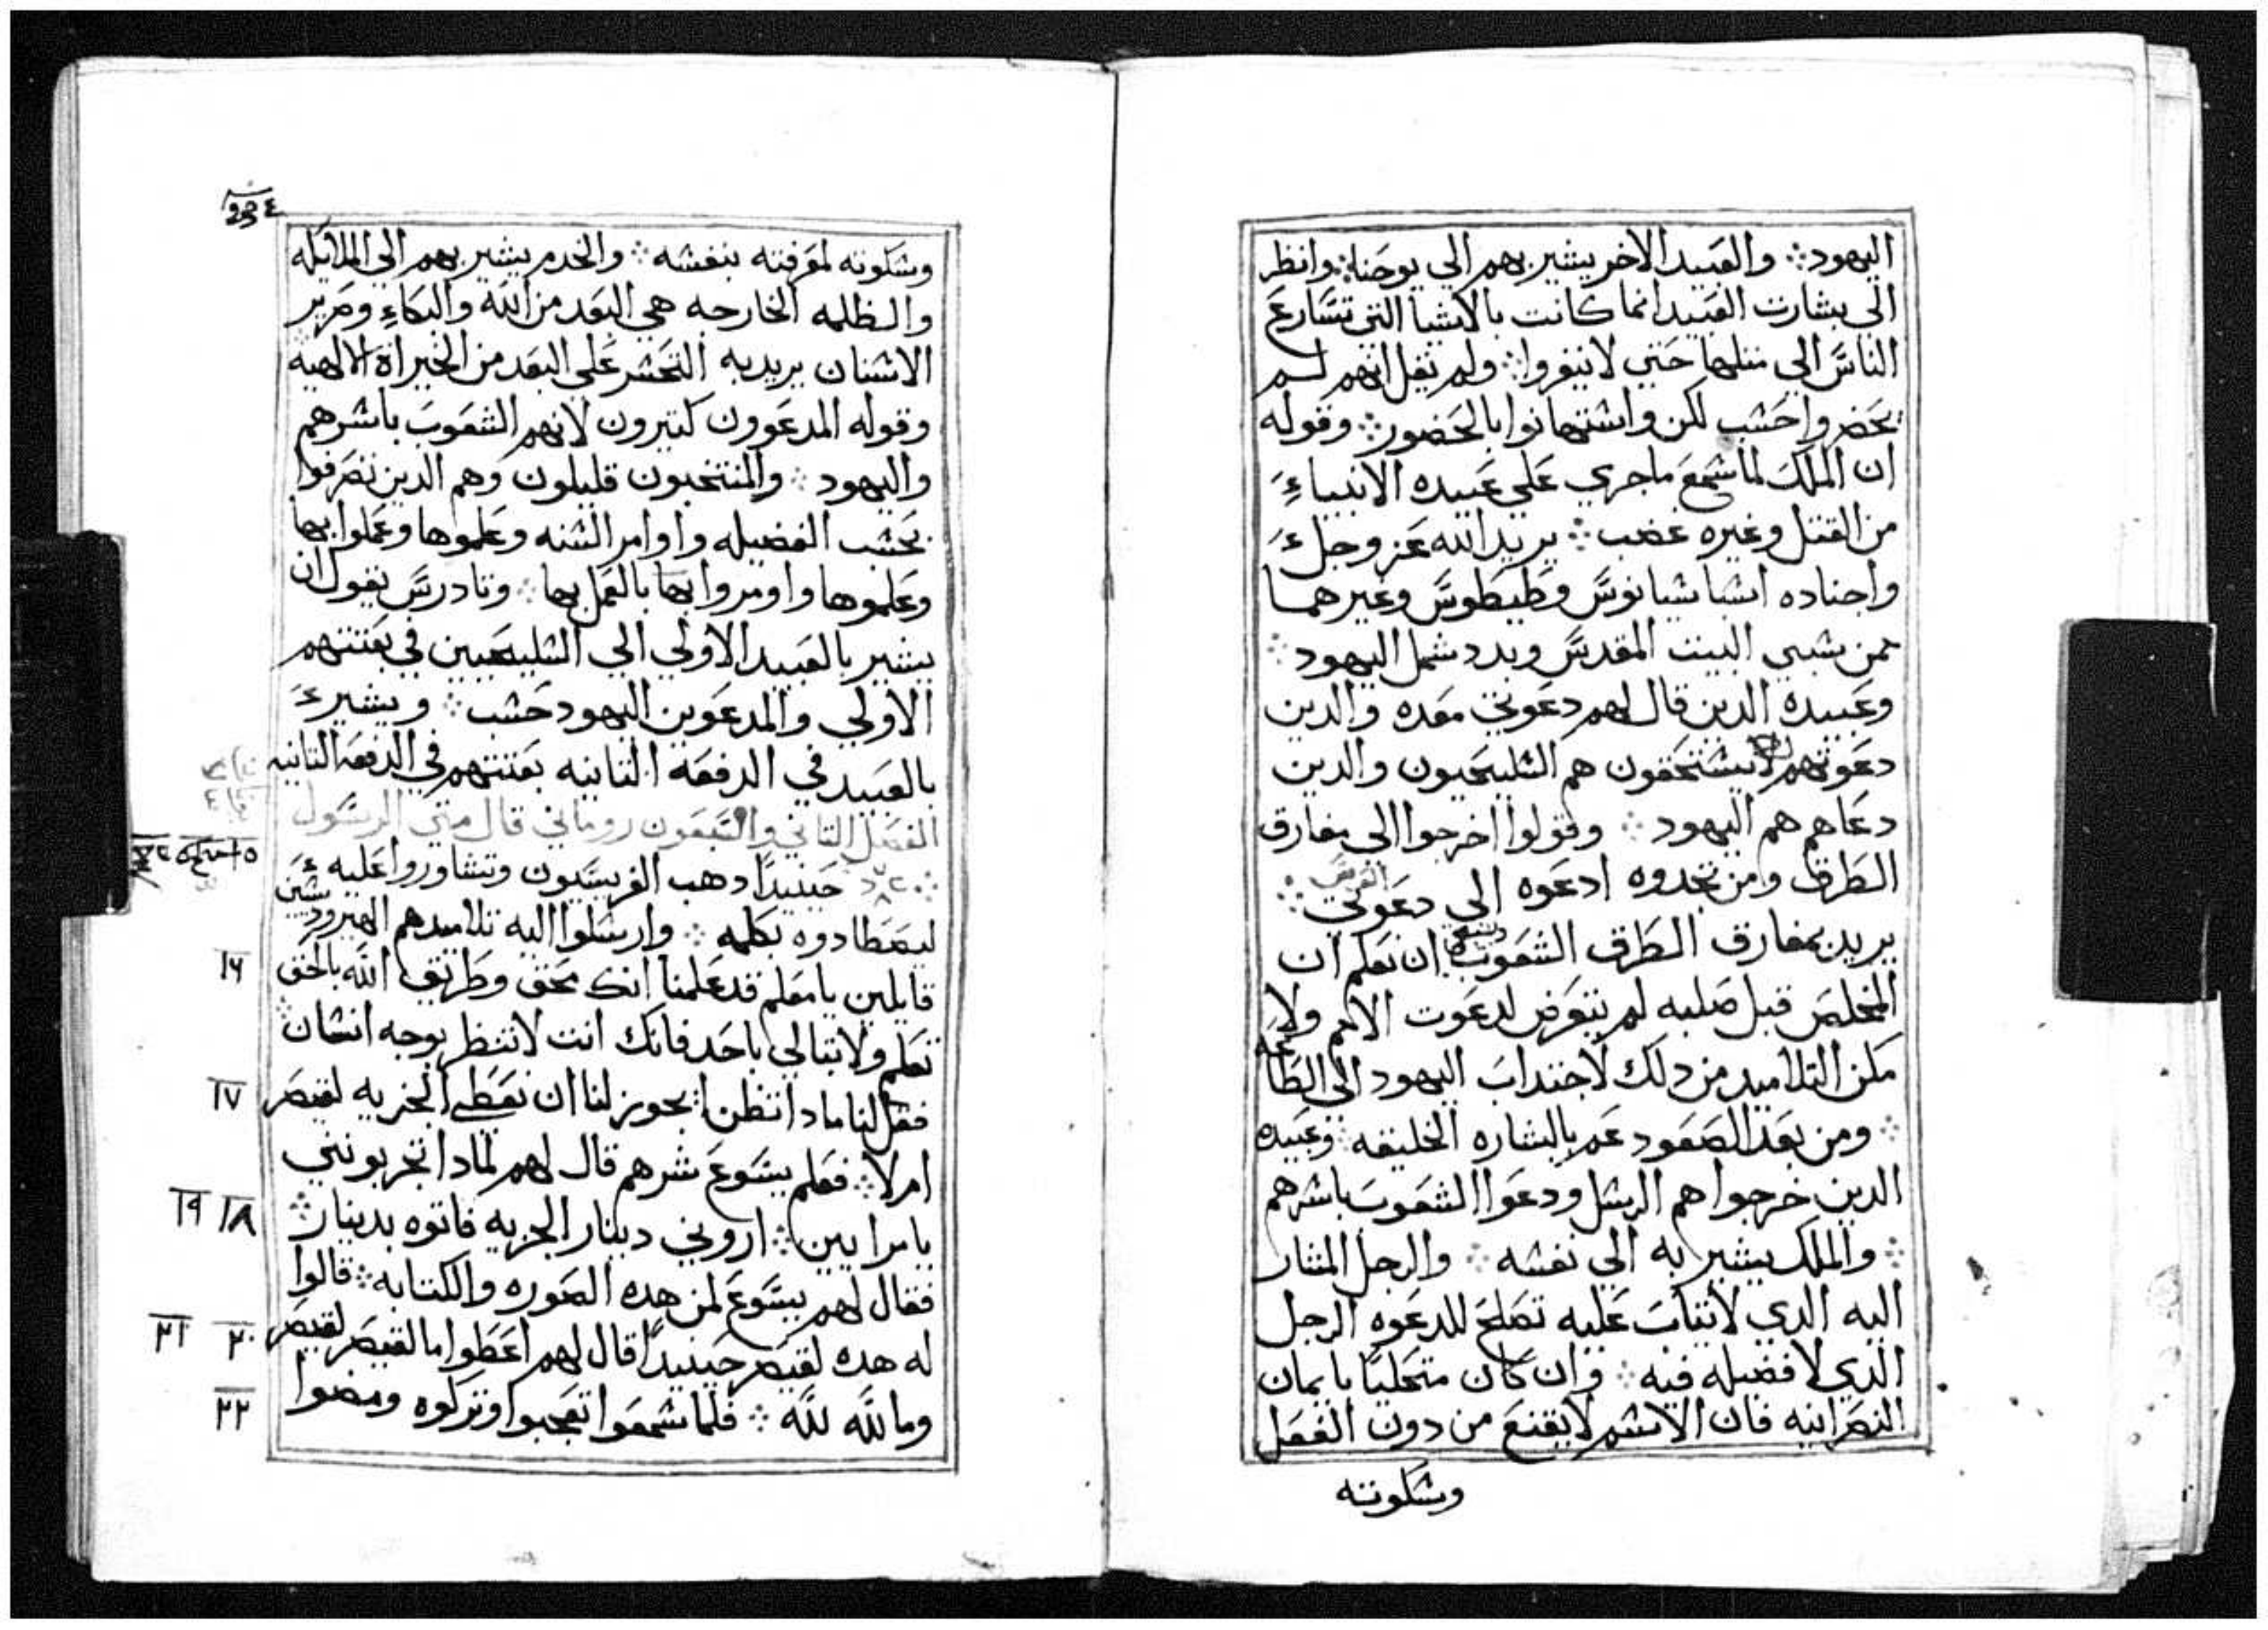 اليهود ⁘ والعبيد الاخر يشير بهم الي يوحنا ⁘ وانظر
الي بشارت العبيد انما كانت بالاشيا التي تتسارع
الناس الي مثلها حتي لا ينفروا ⁘ ولم يقل انهم لم
يحضروا حشب لكن واشتهانوا بالحضور ⁘ وقوله
ان الملك لما شمع ماجري علي عبيده الانبياء
من القتل وغيره غضب ⁘ يريد الله عز وجل
واجناده اشباشيانوس وطيطوس وغيرهما
ممن شبي البيت المقدس وبدد شمل اليهود ⁘
وعبيده الدين قال لهم دعوتي معده والدين
دعوتهم لا يشتحقون هم الشليحيون والدين
دعاهم هم اليهود ⁘ وقولوا اخرجوا الي مفارق
الطرق ومن تجدوه ادعوه الي دعوتي ⁘
العرس
يريد بمفارق الطرق الشعوب ان تعلم ان
المخلص قبل صلبه لم يتعرض لدعوت الامم ولا
مكن التلاميد من دلك لاجتداب اليهود الي الطاعه
⁘ ومن بعد الصعود عم بالبشاره الخليقه ⁘ وعبيده
الدين خرجوا هم الرشل ودعوا الشعوب باشرهم
⁘ والملك يشير به الي نفشه ⁘ والرجل المشار
اليه الدي لا تياب عليه تصلح للدعوه الرجل
الدي لا فضيله فيه ⁘ وان كان متحليا بايمان
النصرانيه فان الاشم لا يقنع من دون الفعل
وشكوته
وشكوته لمعرفته بنفشه ⁘ والخدم يشير بهم الي الملايكه
والظلمه الخارجه هي البعد من الله والبكاء وصرير
الاشنان يريد به التحشر علي البعد من الخيراة الالهيه
وقوله المدعوون كتيرون لانهم الشعوب باشرهم
واليهود ⁘ والمنتخبون قليلون وهم الدين تصرفوا
بحشب الفضيله واوامر الشنه وعلموها وعملوا بها
وعلموها واومروا بها بالعمل بها ⁘ وتادرس يقول ان
يشير بالعبيد الاولي الي الشليحيين في بعتتهم
الاولي والمدعوين اليهود حشب ⁘ ويشير
بالعبيد في الدفعه التانيه بعتتهم في الدفعه التانيه
الفصل التاني والسبعون روماني قال متي الرسول
حينيدًا دهب الفريسيون وتشاوروا عليه
ليصطادوه بكلمه ⁘ وارشلوا اليه تلاميدهم الهيرودشيين
١٦ قايلين يا معلم قد علمنا انك محق وطريق الله بالحق
تعلم ولا تبالي باحد فانك انت لا تنظر بوجه انشان ⁘
١٧ فقل لنا مادا تظن ايجوز لنا ان نعطي الجزيه لقيصر
ام لا ⁘ فعلم يسوع شرهم قال لهم لمادا تجربونني
١٨ ١٩ يا مرايين ⁘ اروني دينار الجزيه فاتوه بدينار ⁘
فقال لهم يسوع لمن هده الصوره والكتابه ⁘ قالوا
٢٠ ٢١ له هده لقيصر حينيدًا قال لهم اعطوا ما لقيصر لقيصر
٢٢ وما لله لله ⁘ فلما شمعوا تعجبوا وتركوه ومضوا